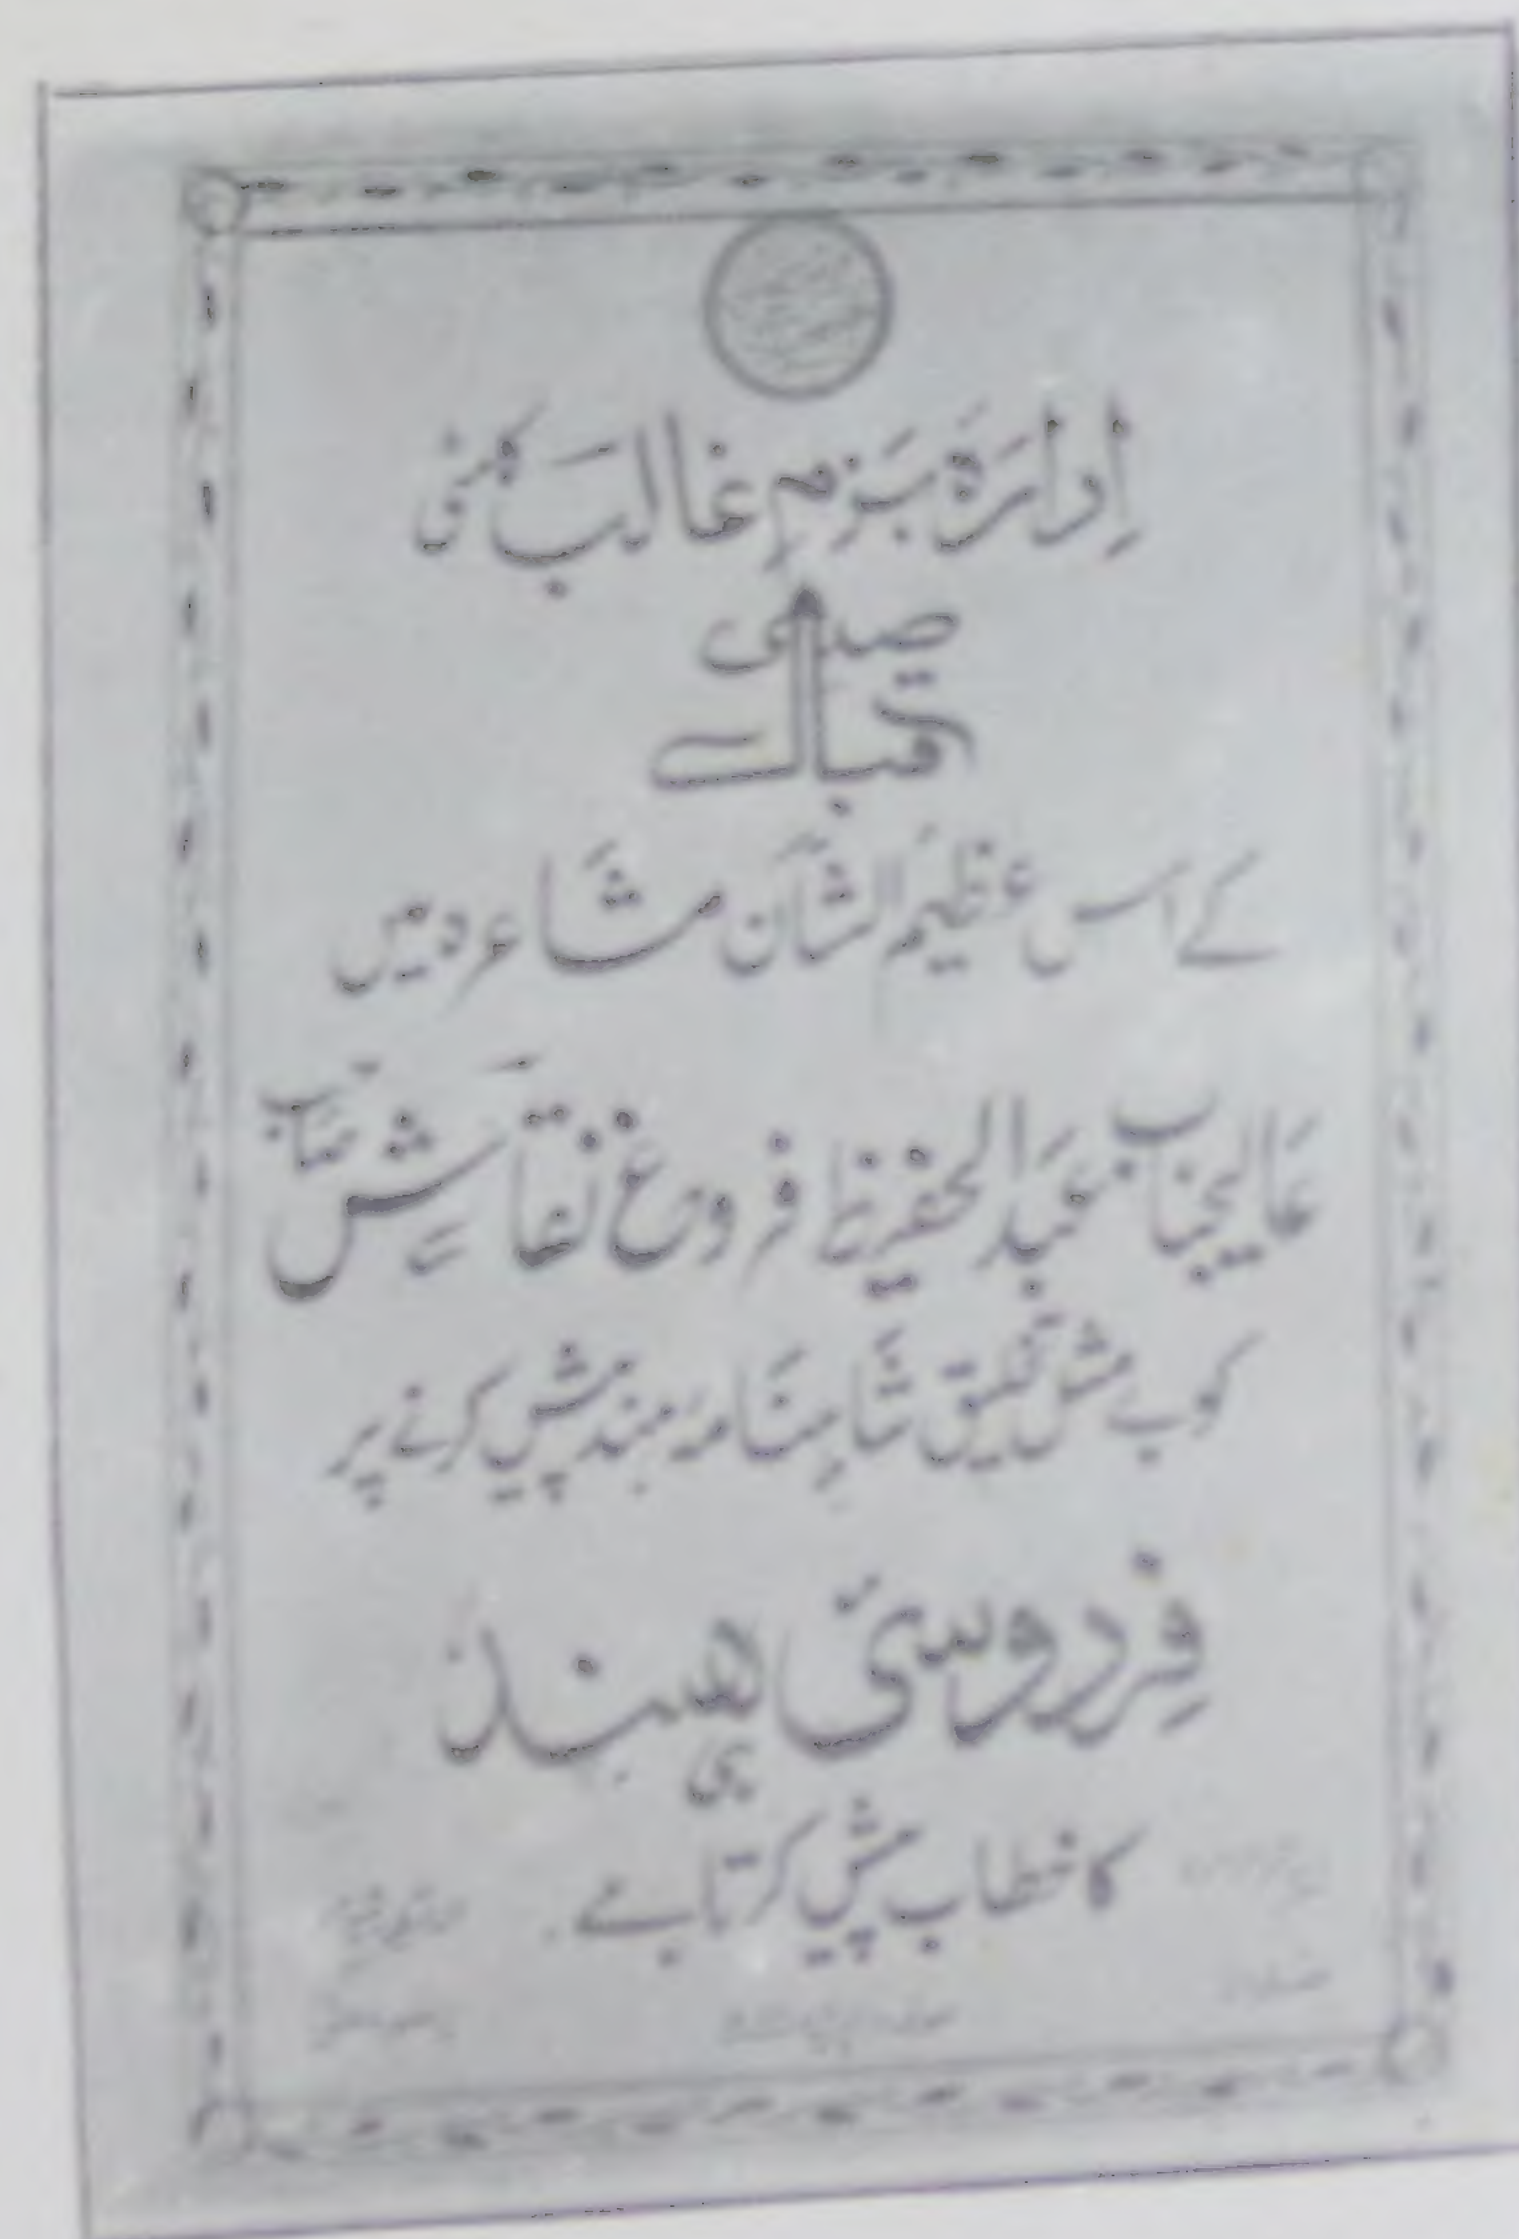 اِدارَہ بَزمِ غالبَ کامٹی
صدی
اقبالے
کے اس عظیم الشّان مشَاعرہ میں
عَالیجناب عَبدالحفیظ فروغ نقاش صَاحب
کو بے مثل تخلیق شَاہنَامۂ ہند پیش کرنے پر
فِردوسیٔ ھند
کا خطاب پیش کرتا ہے۔